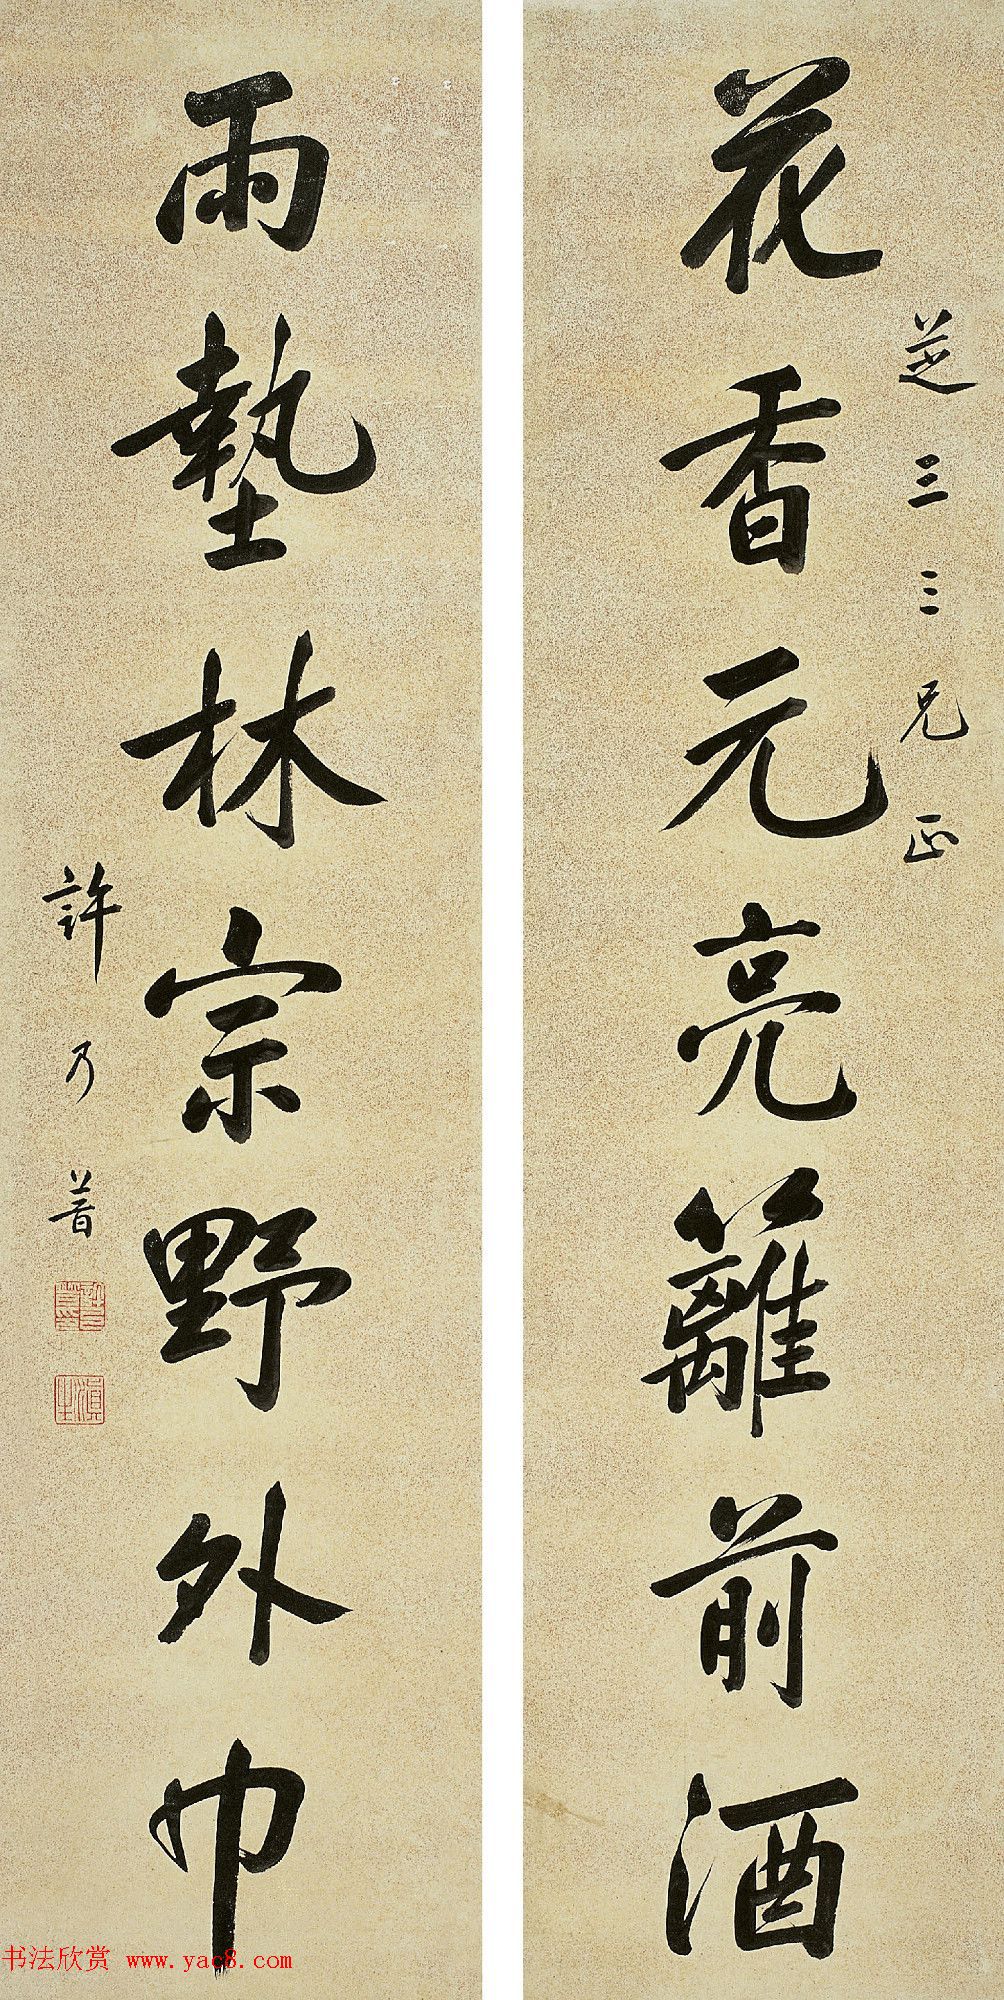 花香元亮籬前酒
芝三三兄正
雨墊林宗野外巾
許乃普
書法欣赏 www.yac8.com